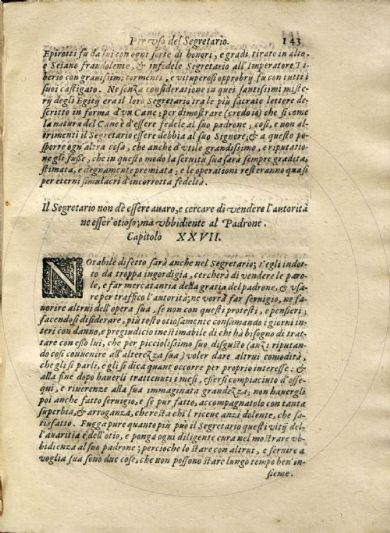 Per uso del Segretario. 143
Epirotti fu da lui con ogni sorte di honori, e gradi tirato in alto.
e Seiano fraudolento, & infidele Segretario all'Imperatore Ti
berio con grauissimi tormenti, e vituperosi opprobrij fu con tutti i
suoi castigato. Ne senza consideratione in quei santissimi miste
rij degli Egittij era il loro Segretario tra le più sacrate lettere de-
scritto in forma d'vn Cane; per dimostrare (credo io) che si come
la natura del Cane è d'essere fedele al suo padrone; cosi, e non al-
trimenti il Segretario essere debbia al suo Signore, & a questo po
sporre ogn'altra cosa, che anche d'vtile grandissimo, e riputatio-
ne gli fusse, che in questo modo la seruitù sua sarà sempre gradita,
stimata, e degnamente premiata; e le operationi resteranno quasi
per eterni simulacri d'incorrotta fedeltà.
Il Segretario non dè essere auaro, e cercare di vendere l'autorità
ne esser'otioso; ma vbbidiente al Padrone.
Capitolo XXVII.
NOtabile difetto sarà anche nel Segretario; s'egli indot-
to da troppa ingordigia, cercherà di vendere le paro-
le, e far mercatantia della gratia del padrone, & vsa-
re per traffico l'autorità; ne vorrà far seruigio, ne fa
uorire altrui dell'opera sua, se non con questi protesti, e pensieri,
facendosi disiderare, più tosto otiosamente consumando i giorni in
teri con danno, e pregiudicio inestimabile di chi hà bisogno di trat-
tare con esso lui, che per picciolissimo suo disgusto (anzi riputan-
do cosi conuenire all'alterezza sua) voler dare altrui comodità,
che gli si parli, e gli si dica quant'occorre per proprio interesse: &
alla fine dopo hauerli trattenuti i mesi, essersi compiaciuto d'osse-
qui, e riuerenze alla sua immaginata grandezza; non hauergli
poi anche fatto seruigio, e se pur fatto, accompagnatolo con tanta
superbia, & arroganza, che resta chi'l riceue anzi dolente, che sa-
tisfatto. Fugga pure quanto più può il Segretario questi vitij del-
l'auaritia e dell'otio, e ponga ogni diligente cura nel mostrare vb
bidienza al suo padrone; percioche lo stare con altrui, e seruire a
voglia sua sono due cose, che non possono stare lungo tempo ben'in-
sieme.